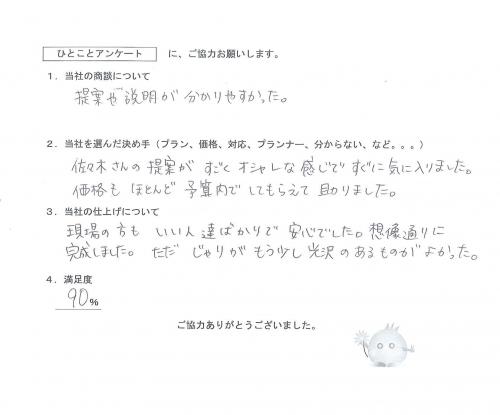 ひとことアンケート に、ご協力お願いします。
1．当社の商談について
提案や説明が分かりやすかった。
2．当社を選んだ決め手（プラン、価格、対応、プランナー、分からない、など。。。）
佐々木さんの提案がすごくオシャレな感じですぐに気に入りました。
価格もほとんど予算内でしてもらえて助りました。
3．当社の仕上げについて
現場の方もいい人達ばかりで安心でした。想像通りに
完成しました。ただじゃりがもう少し光沢のあるものがよかった。
4．満足度
90%
ご協力ありがとうございました。